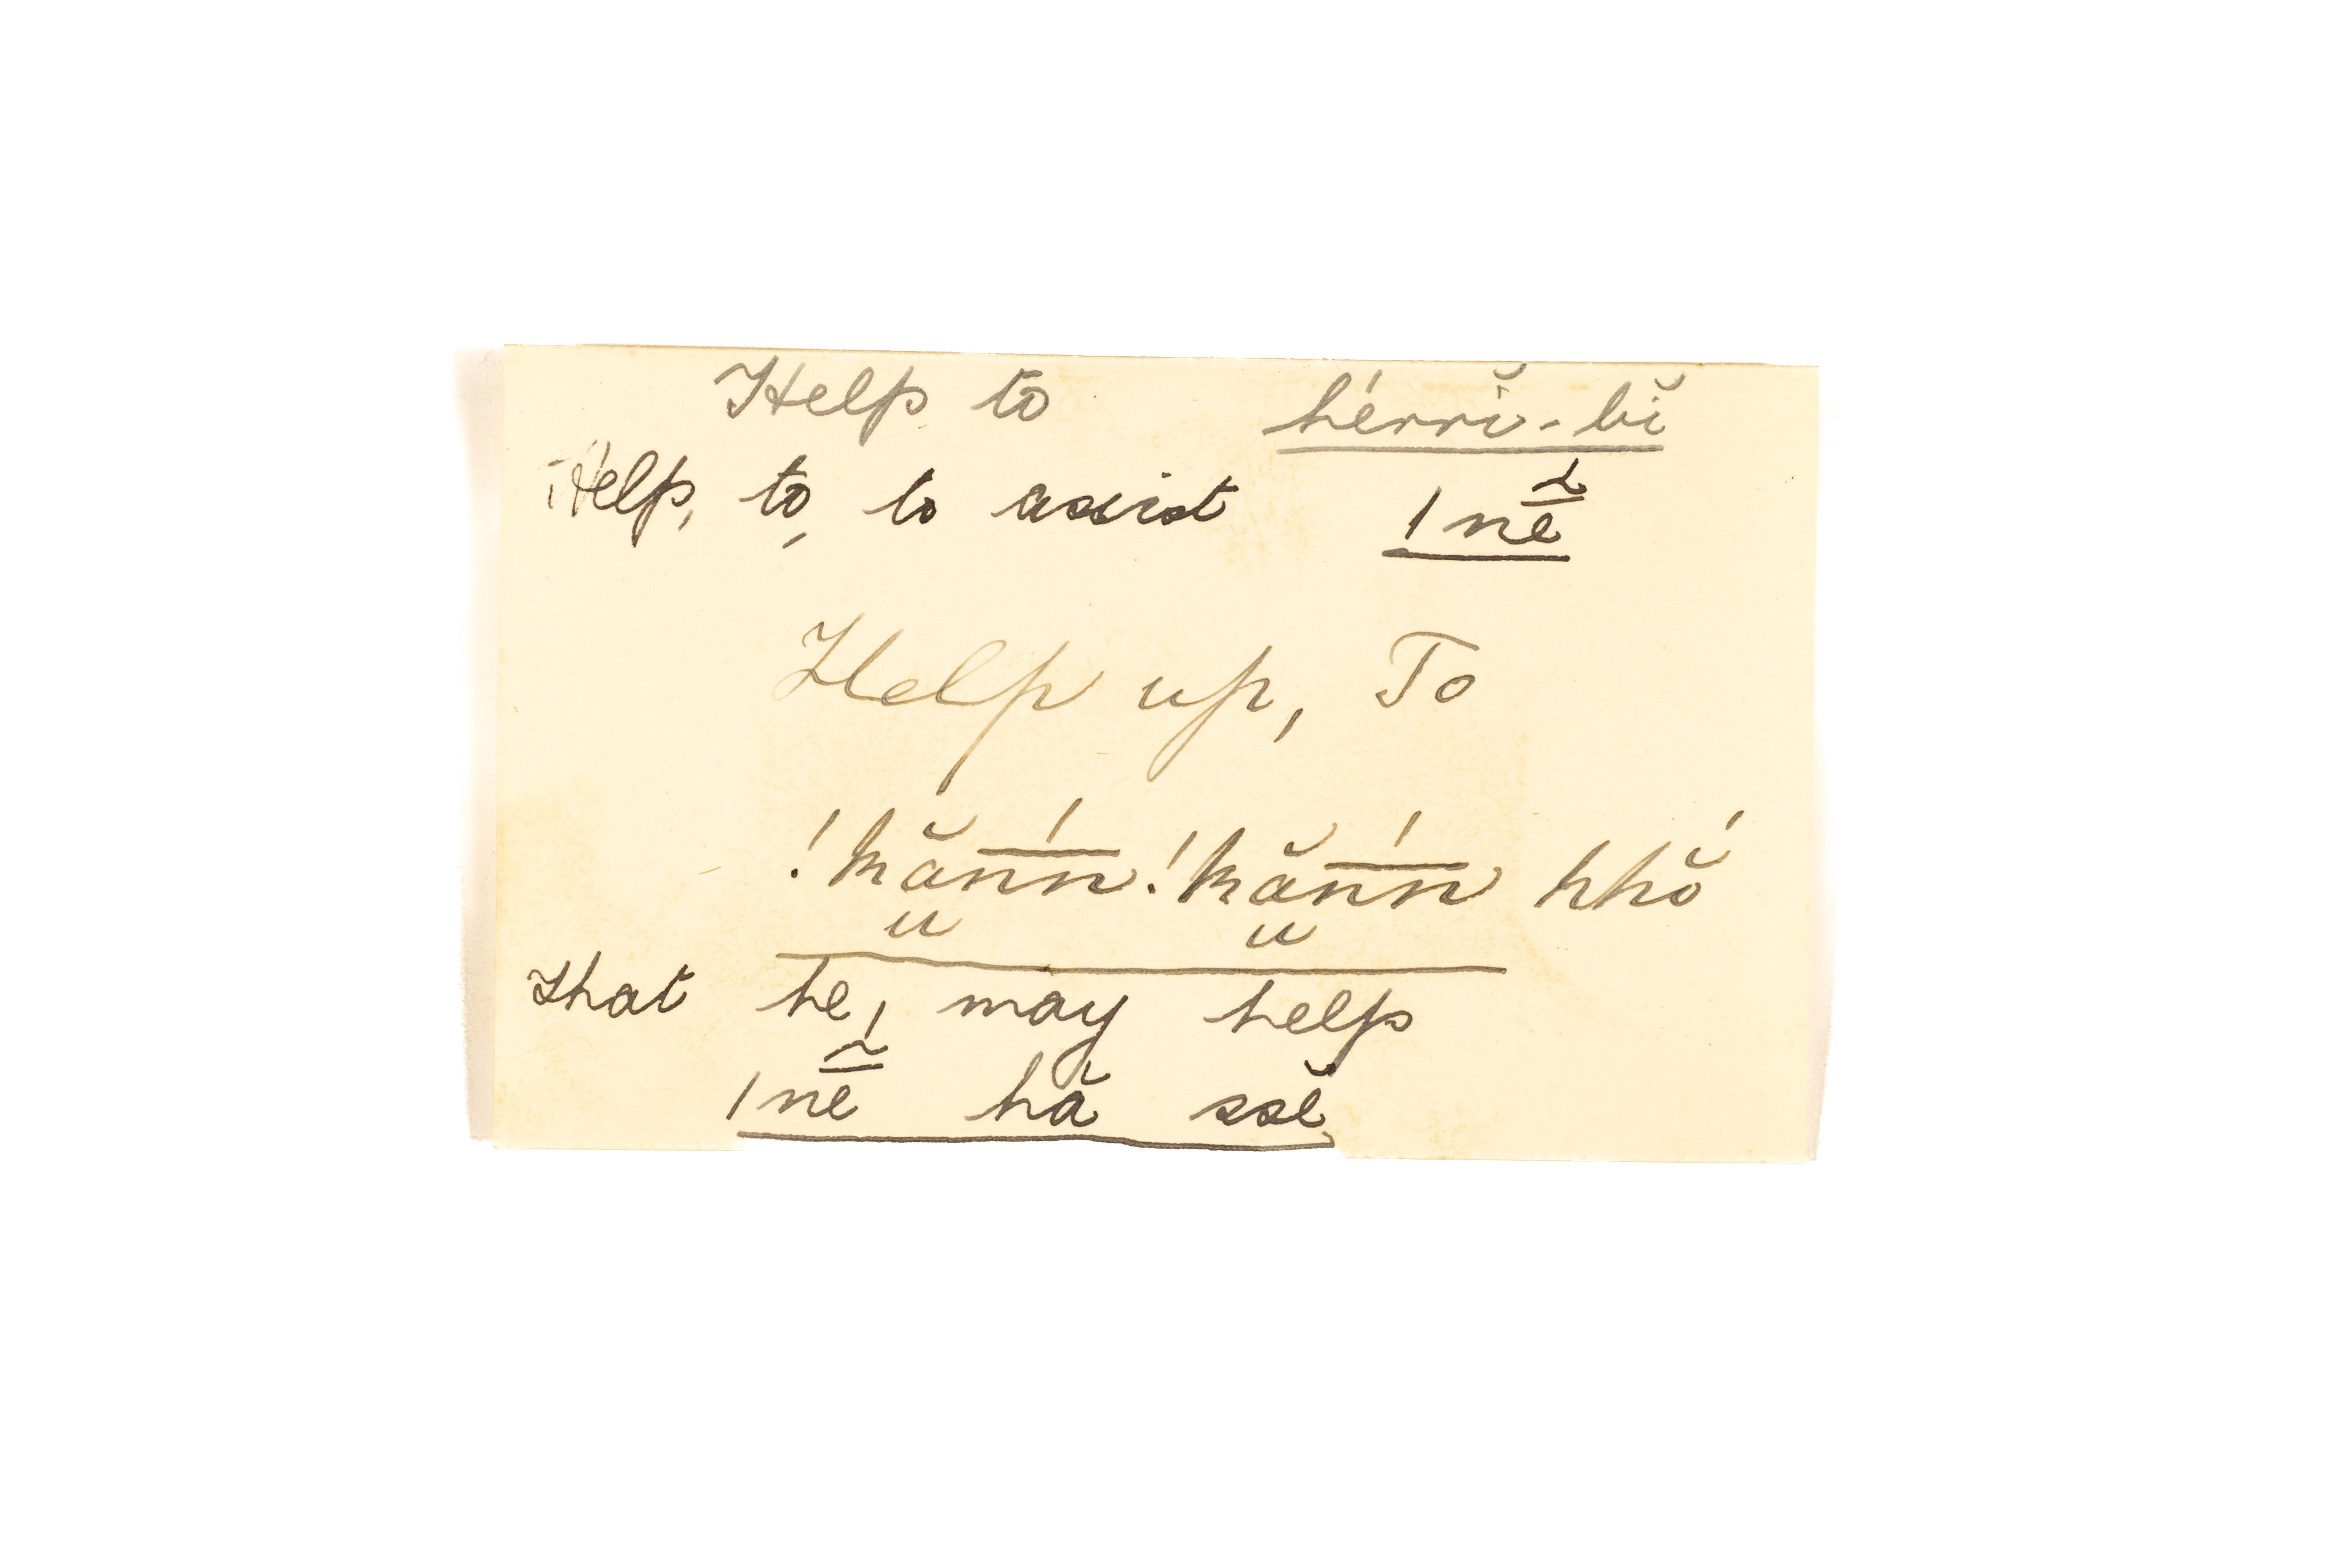 Help to hérrĭ-bĭ
Help, to, to assist ǀnē̃́
Help up, To
!kă̤nń̄!kă̤nń̄ hhŏ́
that he, may help
ǀnē̃́ hă ssĕ